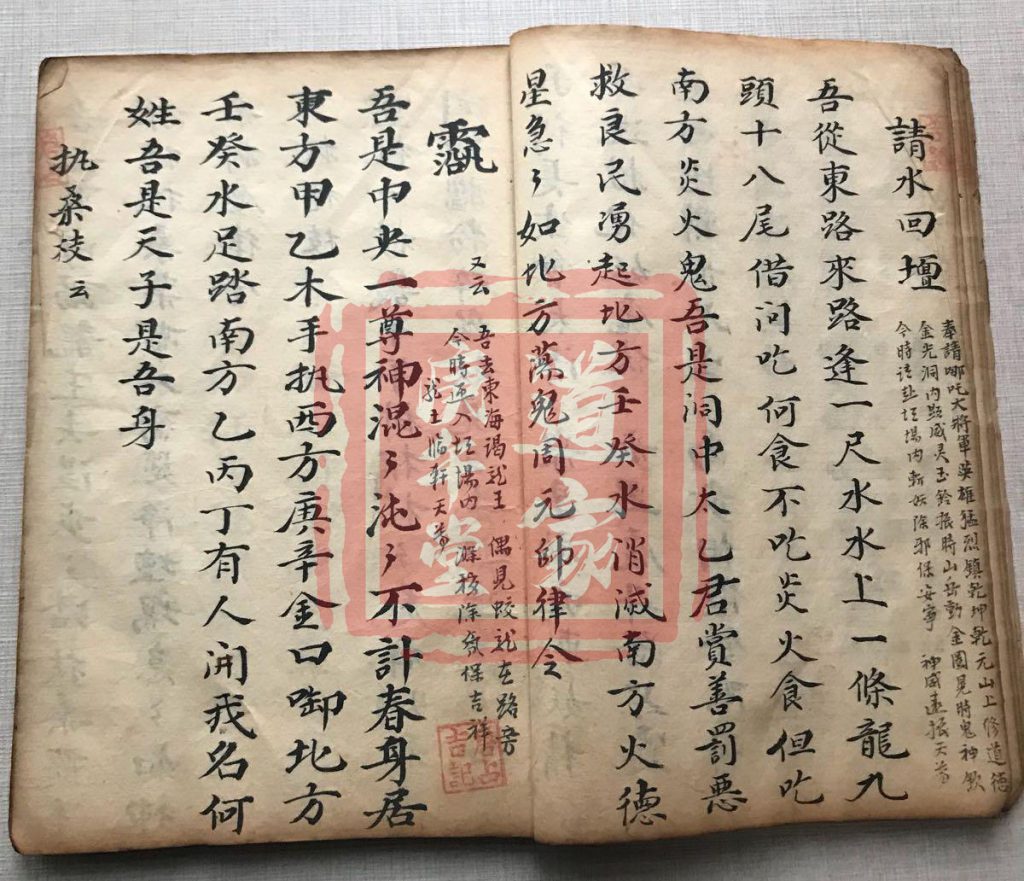 請水回壇
奉請哪吒大將軍英雄猛烈鎮乾坤乾元山上修道德
金光洞內點威灵玉鈴振時山岳動金圈晃時鬼神欽
今時請赴坛場內斬妖除邪保安寧 神威速振天尊
吾從東路來路逢一尺水水上一條龍九
頭十八尾借問吃何食不吃炎火食但吃
南方炎火鬼吾是洞中太乙君賞善罰惡
救良民湧起北方壬癸水消滅南方火德
星急々如北方蕩鬼周元帥律令
又云
吾去東海謁龍王 偶見蛟龍在路旁
今時迎入坛場內 除氛保吉祥
龙土临轩天尊
吾是中央一尊神混々沌々不計春身居
東方甲乙木手执西方庚辛金口啣北方
壬癸水足踏南方乙丙丁有人問我名何
姓吾是天子是吾身
执桑枝云
道家
堂
吉記